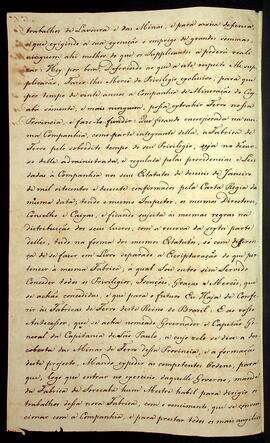 trabalhos da Lavoura e das Minas, e para outros diferentes
a que exigindo a sua execução o emprego de grandes sommas,
ninguem ahi melhor do que os Supplicantes a poderá reali-
zar: Hey por bem Deferindo ao que a este respeito Me sup-
plicarão, Fazer-lhes Mercê do Privilegio exclusivo, para que
por tempo de vinte annos a Companhia de Mineração do Cuy-
abá sómente, e mais ninguem, possa extrahir Ferro nessa
Provincia, e faze-lo fundir: Que ficando encorporada na mes-
ma Companhia, como parte integrante della, a Fabrica de
Ferro pelo sobredito tempo do seu Privilegio, seja na duração
delle administrada, e regulada pelas providencias e Leis
dadas à Companhia no seus Estatutos de dous de Janeiro
de mil oitocentos e dezesete confirmados pela Carta Regia da
mesma data; tendo o mesmo Inspector, o mesmo Directores,
Conselho e Caixas, e ficando sujeita ás mesmas regras na
distribuição dos seus lucros, com a reserva da sexta parte
delles, tudo na forma dos mesmos Estatutos, só com differença
de se fazer em Livro separado a Escripturação do que per-
tencer à mesma Fabrica, a qual Sou outro sim Servido
Conceder todos os Privilegios, Izenções, Graças, e Mercês, que
se achão concedidas, e que para o futuro Eu Haja de Confe-
rir ás Fabricas de Ferro deste Reino do Brasil. E ao vosso
Antecessor, que se acha nomeado Governador e Capitão Ge-
neral da Capitania de São Paulo, a cujo zelo se deve a des-
coberta das Minas de Ferro dessa Provincia, e a formação
deste projecto, Mando expedir as competentes Ordens, para
que, logo que entrar no exercicio daquelle Governo, mande
da Fabrica de Sorocaba hum Mestre habil para dirigir os
trabalhos dessa nova Fabrica, com o vencimento, que se conven-
cionar com a Companhia, e para prestar todos os mais auxilios